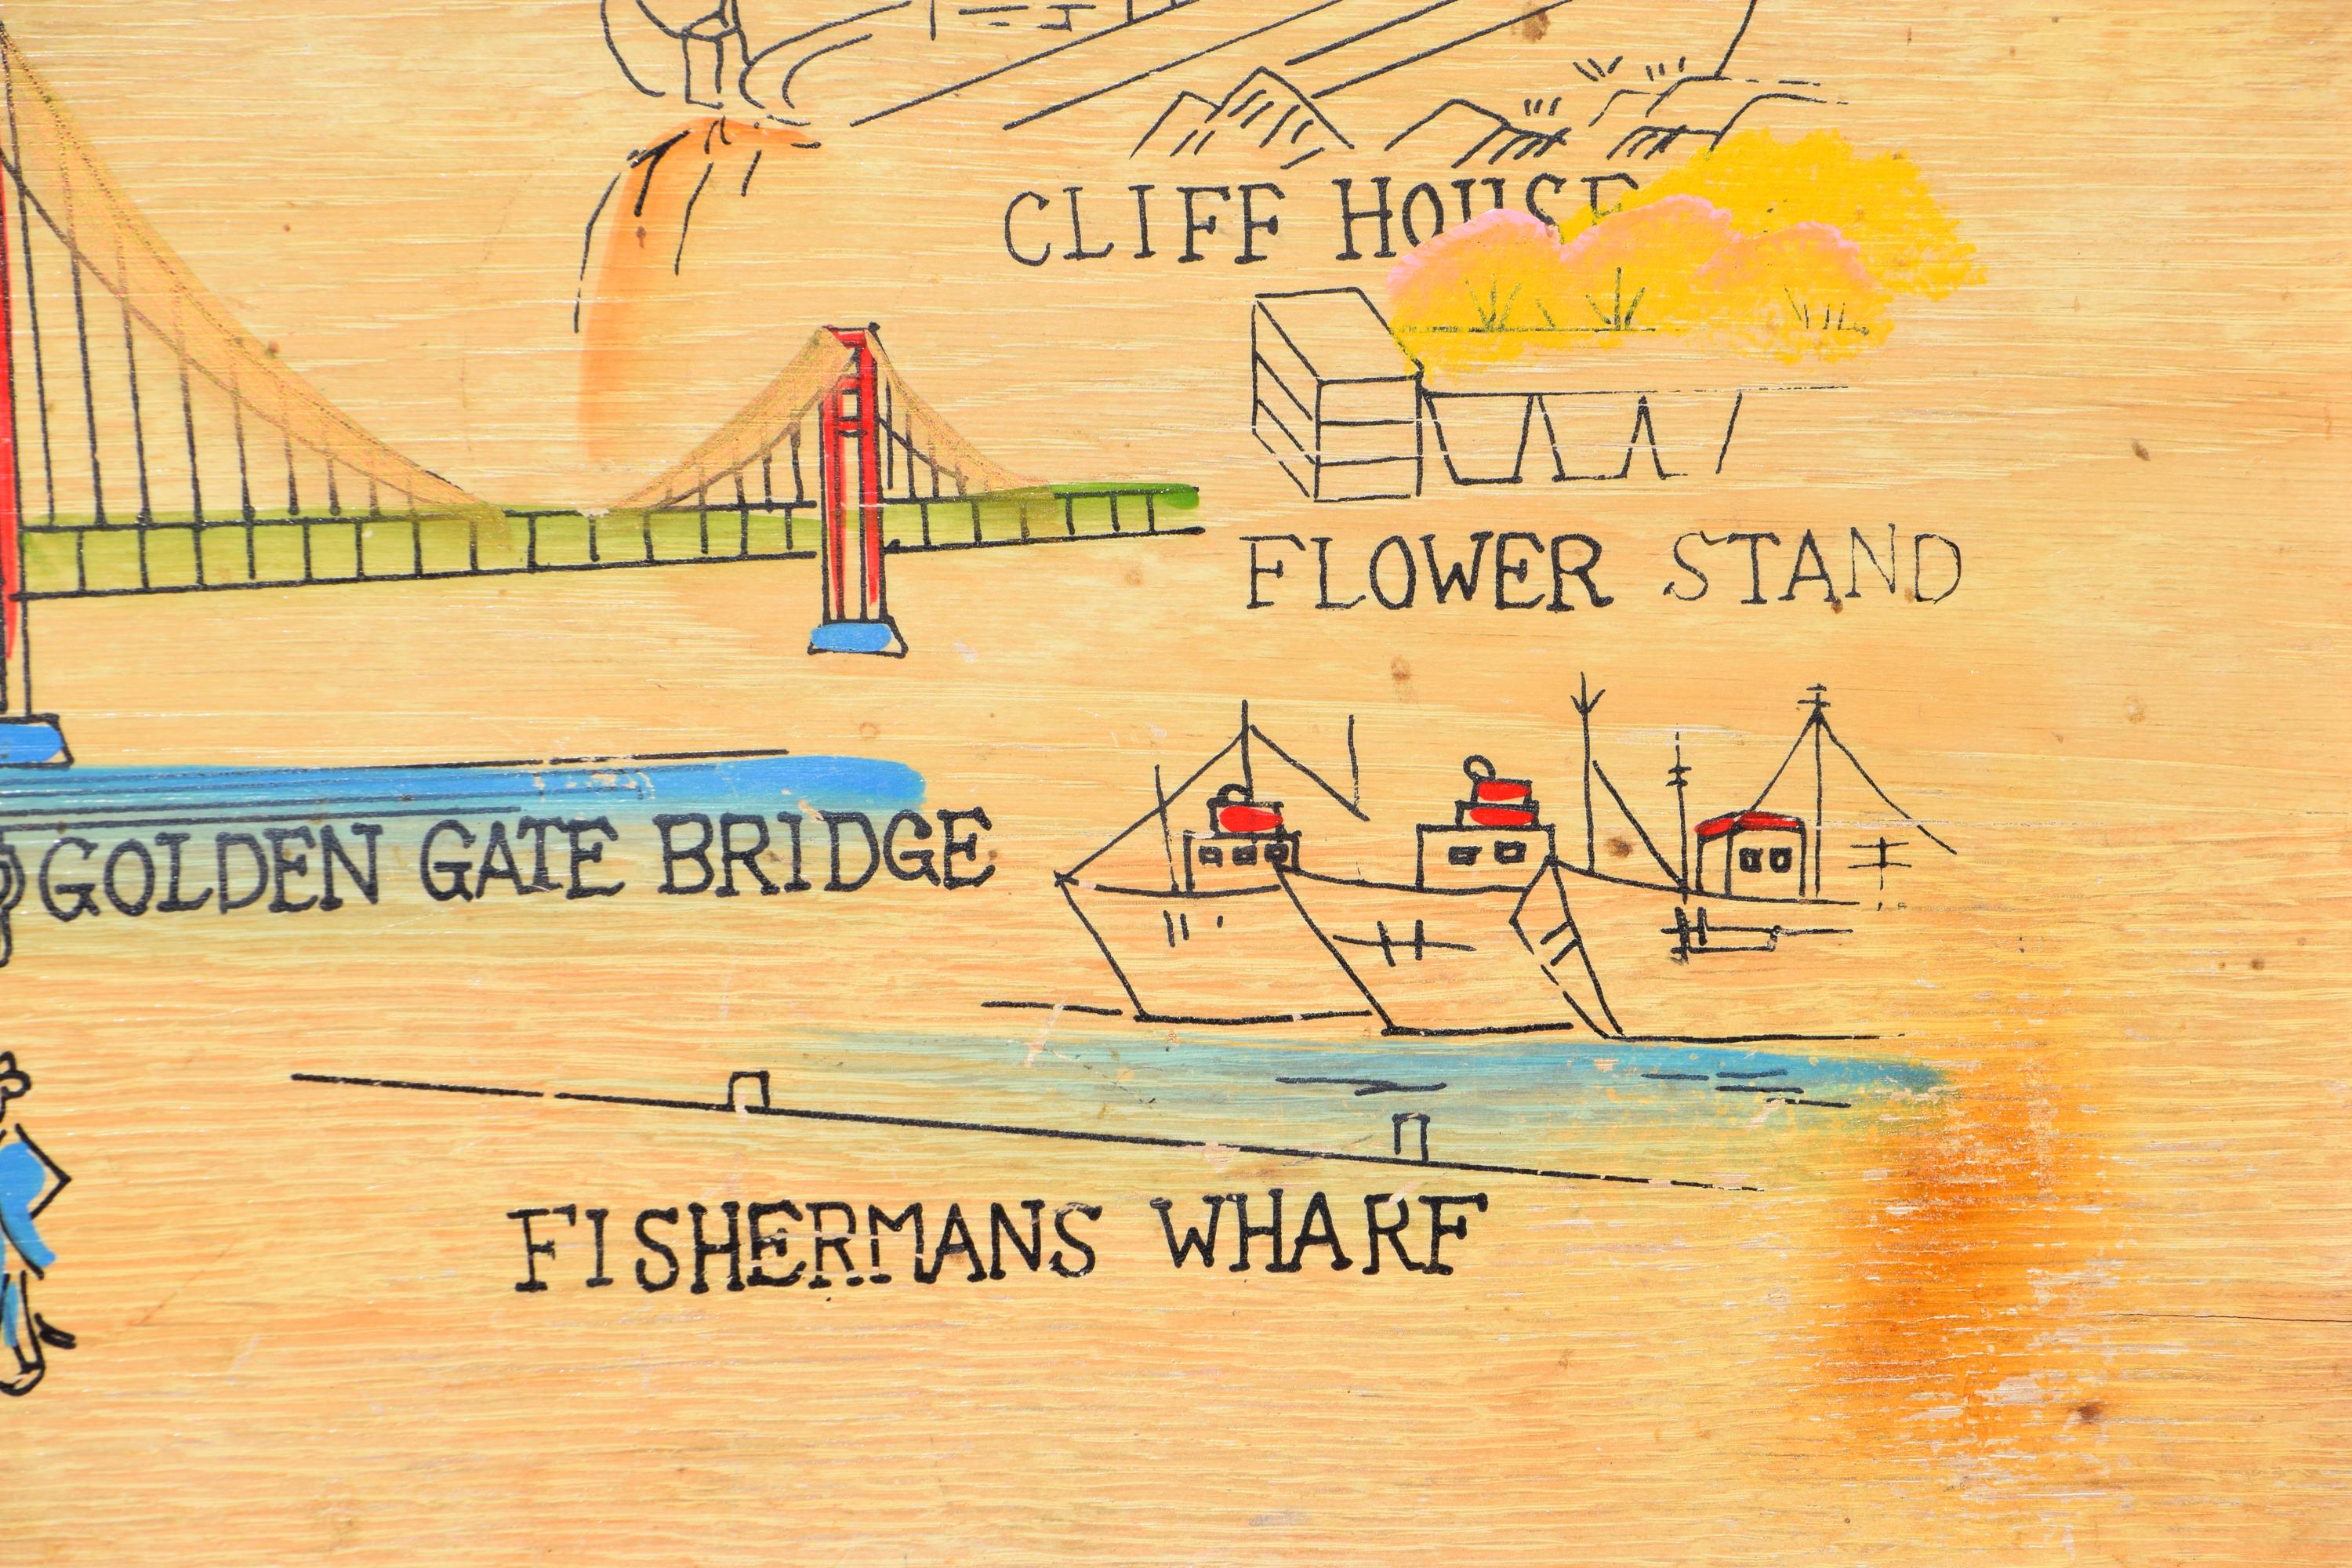 CLIFF HOUSE
FLOWER STAND
GOLDEN GATE BRIDGE
FISHERMANS WHARF